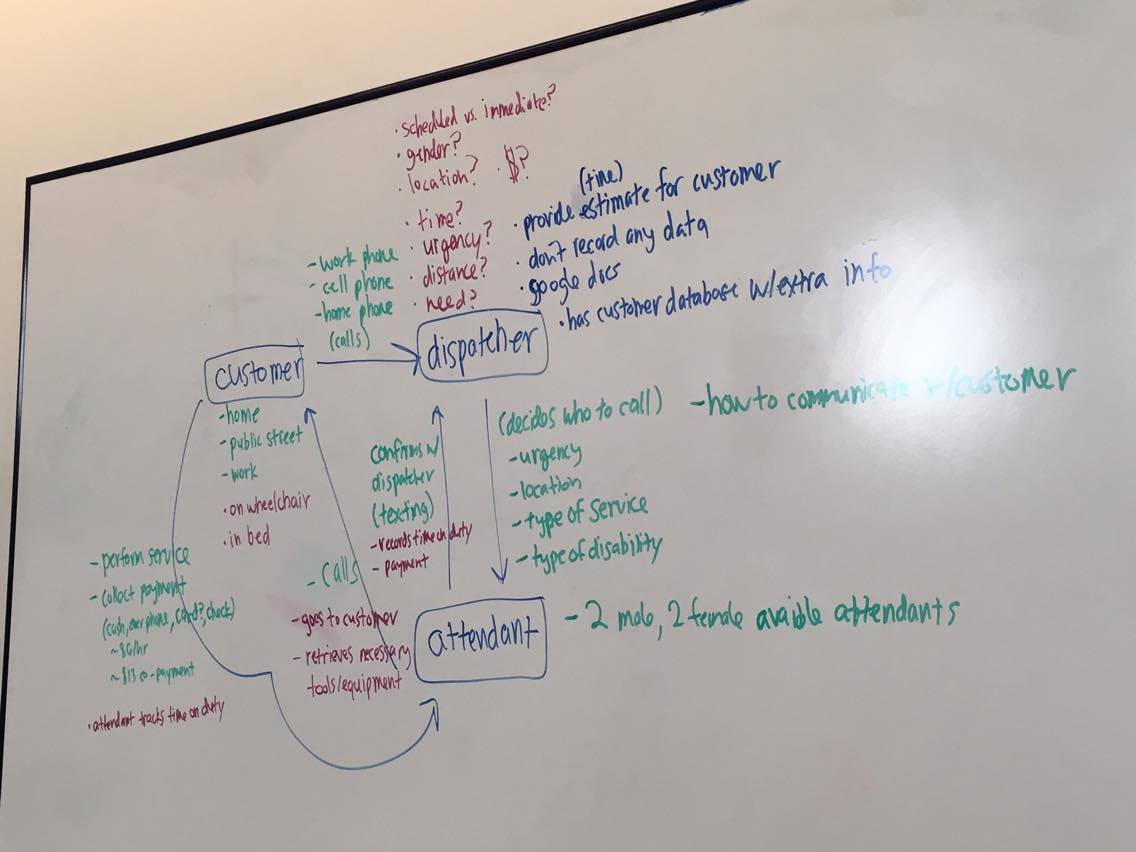 · scheduled vs. immediate?
· gender?
· location? · $?
· time?
· urgency?
· distance?
· need?
(time)
· provide estimate for customer
· don't record any data
· google docs
· has customer database w/extra info
- work phone
- cell phone
- home phone
(calls)
customer
dispatcher
- home
- public street
- work
· on wheelchair
· in bed
confirms w/
dispatcher
(texting)
- records time on duty
- payment
(decides who to call) - how to communicate w/customer
- urgency
- location
- type of service
- type of disability
- perform service
- collect payment
(cash, over phone, card?, check)
~ $6/hr
~ $13 co-payment
· attendant tracks time on duty
- calls
- goes to customer
- retrieves necessary
tools/equipment
attendant
- 2 male, 2 female avaible attendants